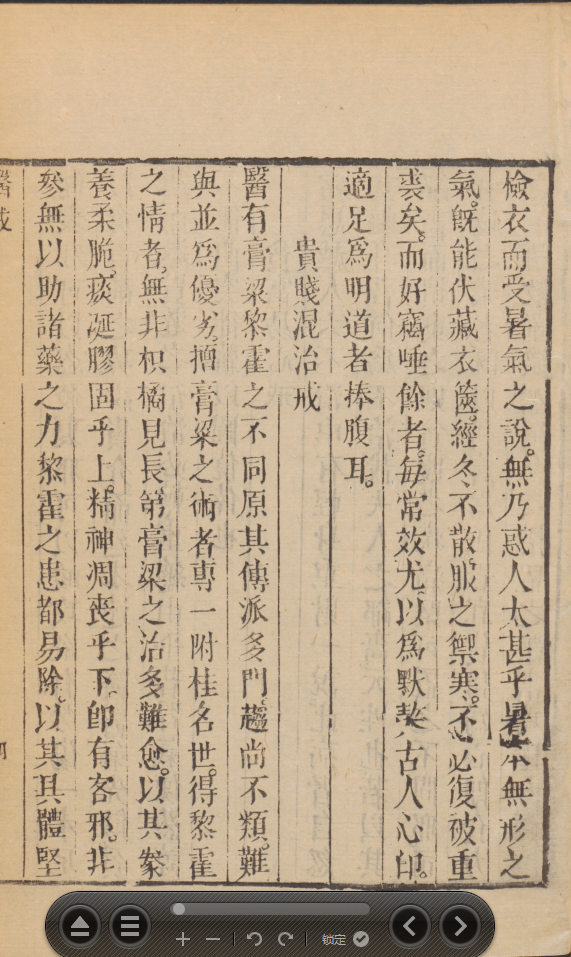 檢衣而受暑氣之說。無乃惑人太甚乎暑本無形之
氣。旣能伏藏衣篋。經冬不散。服之禦寒。不必復破重
裘矣。而好竊唾餘者。每常效尤以爲默契古人心印。
適足爲明道者捧腹耳。
貴賤混治戒
醫有膏粱黎藿之不同原其傳派多門。趨尚不類。難
與並爲優劣。擅膏粱之術者專一附桂名世。得黎藿
之情者。無非枳橘見長第膏粱之治多難愈。以其豢
養柔脆。痰涎膠固乎上。精神凋喪乎下。卽有客邪。非
參無以助諸藥之力黎藿之患都易除。以其具體堅
醫戒
锁定